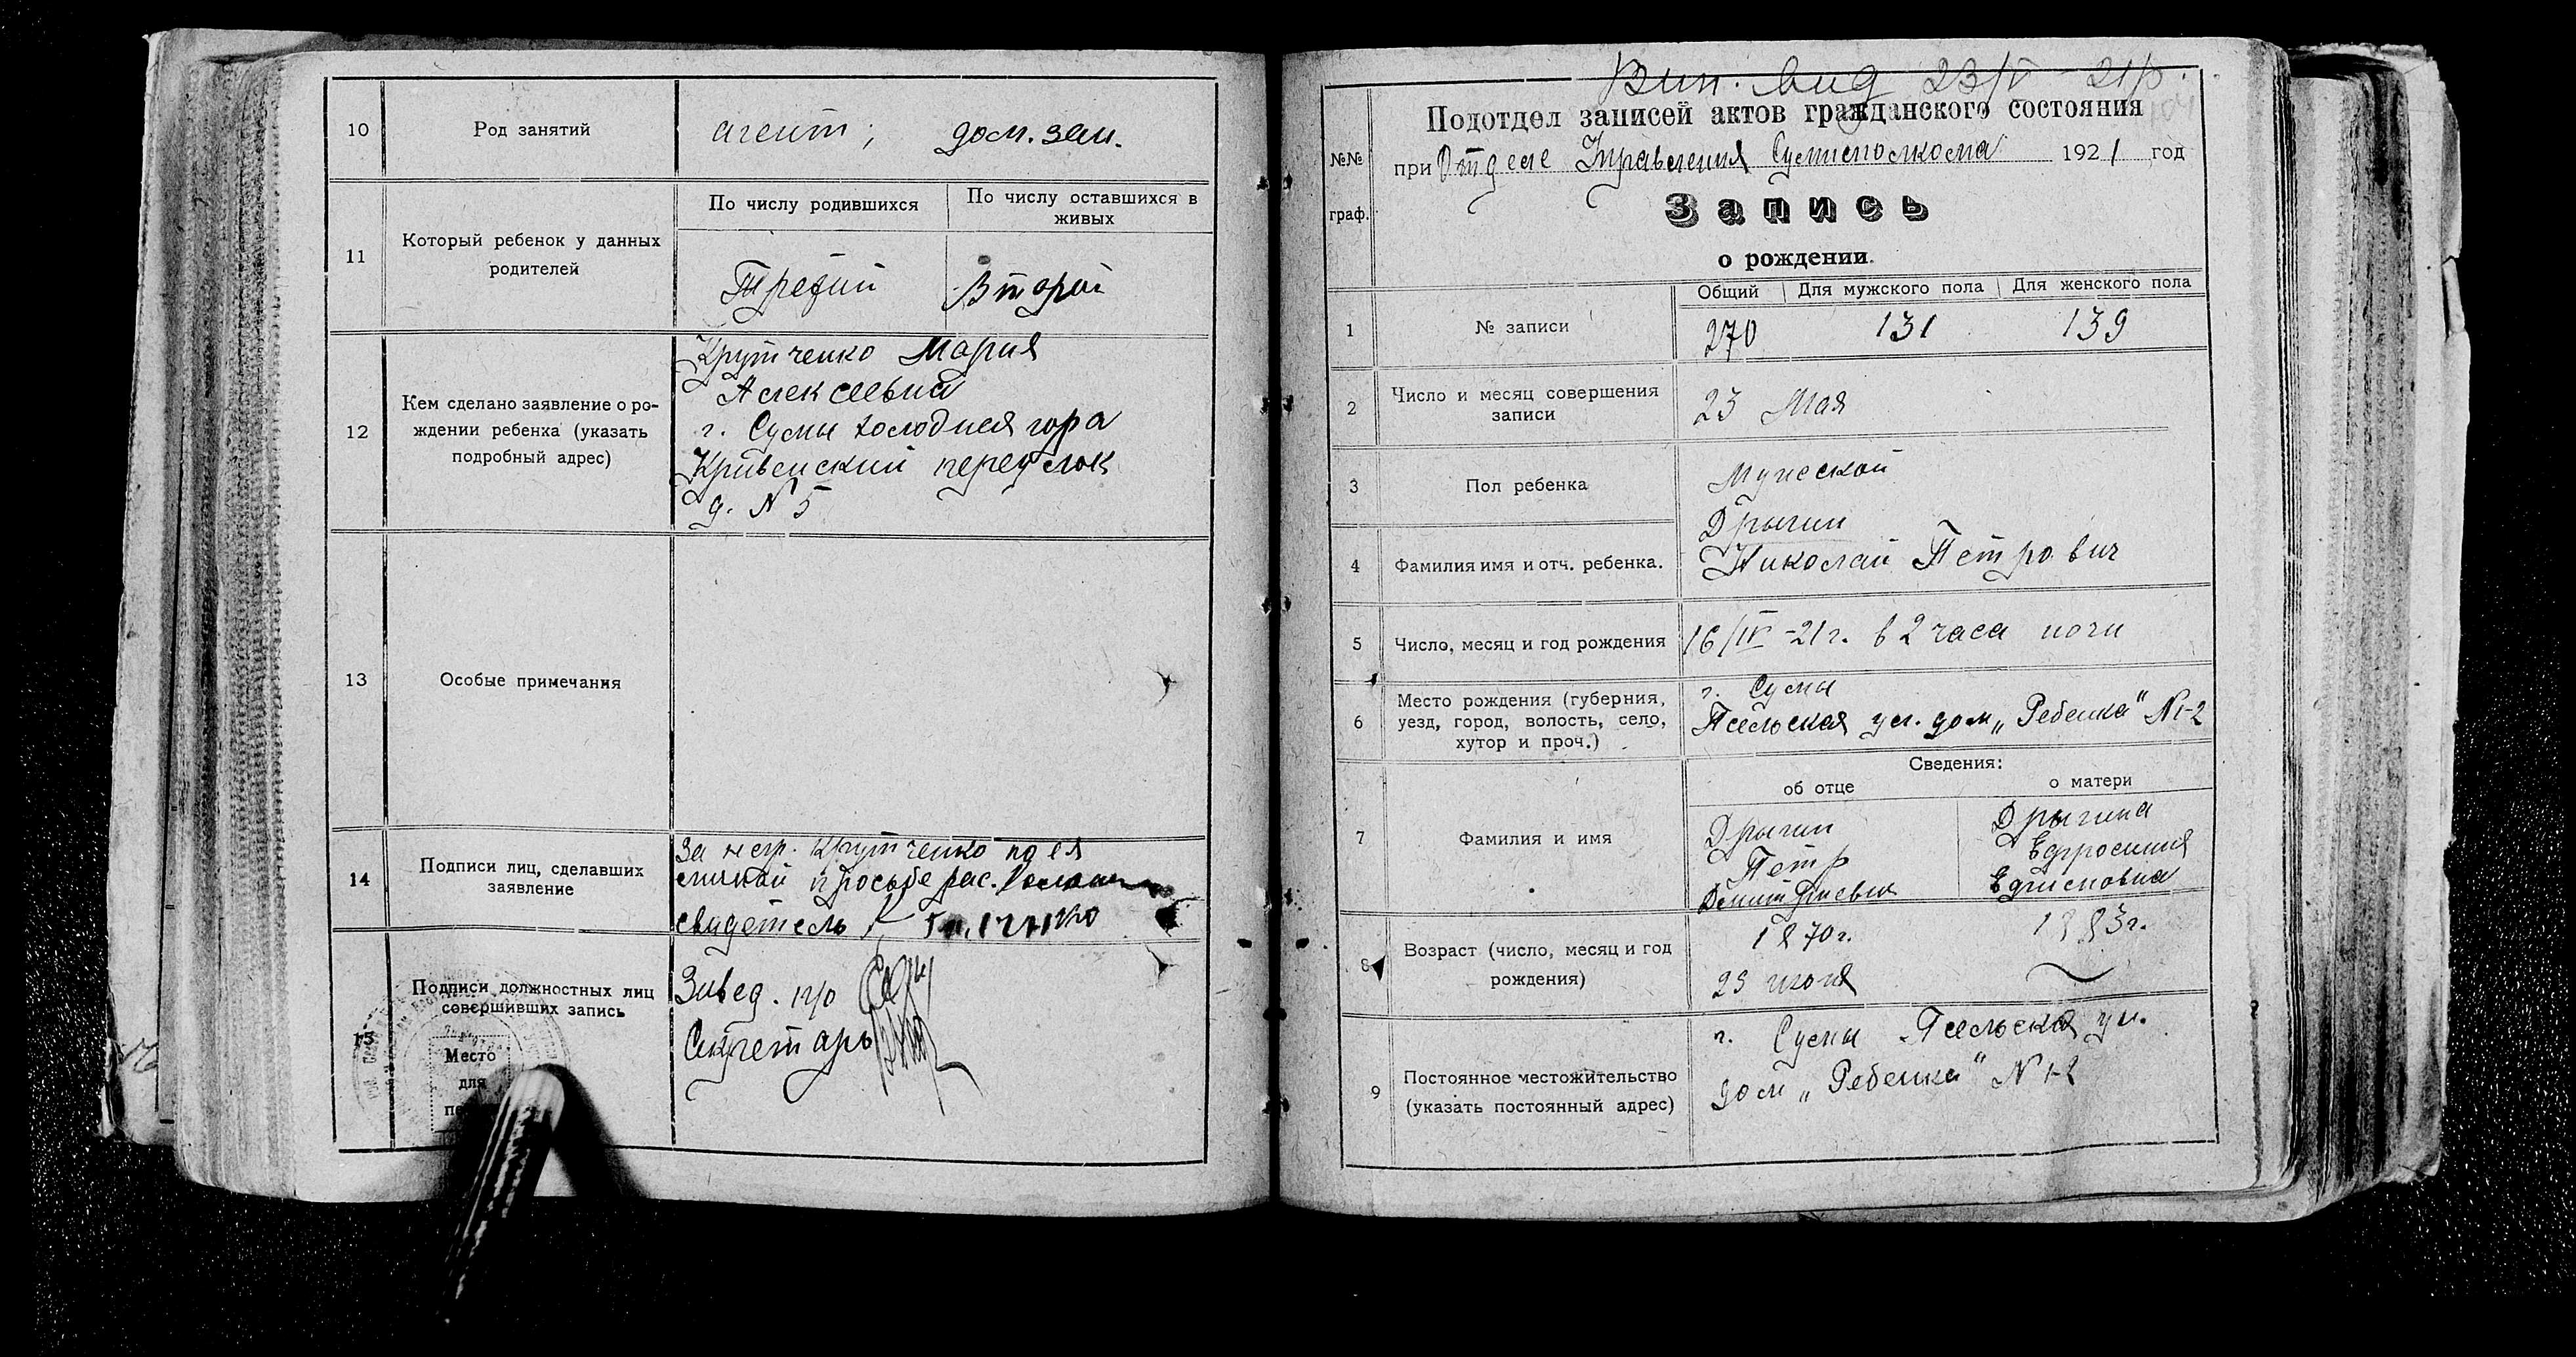 10 Род занятий агент; дом. зан.
11 Который ребенок у данных родителей
По числу родившихся По числу оставшихся в живых
Третий Второй
12 Кем сделано заявление о ро-
ждении ребенка (указать
подробный адрес)
Крутченко Мария
Алексеевна
г. Сумы холодная гора
Кривенский переулок
д. N 5
13 Особые примечания
14 Подписи лиц, сделавших
заявление
За негр. Крутченко по ея
личной просьбе рас.
свидетель
15 Подписи должностных лиц
совершивших запись
Завед. п/о
Секретарь
Место
для
Вып. вид 23/V 21 р.
Подотдел записей актов гражданского состояния
№№ граф.
при Отделе Управления Сумисполкома 1921 год
Запись
о рождении.
Общий Для мужского пола Для женского пола
1 № записи 270 131 139
2 Число и месяц совершения
записи
23 Мая
3 Пол ребенка Мужской
4 Фамилия имя и отч. ребенка.
Дрыгин
Николай Петрович
5 Число, месяц и год рождения 16/IV-21 г. в 2 часа ночи
6 Место рождения (губерния,
уезд, город, волость, село,
хутор и проч.)
г. Сумы
Псельская ул. дом „Ребенка" N 1-2
Сведения:
об отце о матери
7 Фамилия и имя
Дрыгин
Петр
Дмитриевич
Дрыгина
Ефросиния
8 Возраст (число, месяц и год
рождения)
1870 г.
23 июля
1883 г.
9 Постоянное местожительство
(указать постоянный адрес)
г. Сумы Псельская ул.
дом „Ребенка" N 1-2